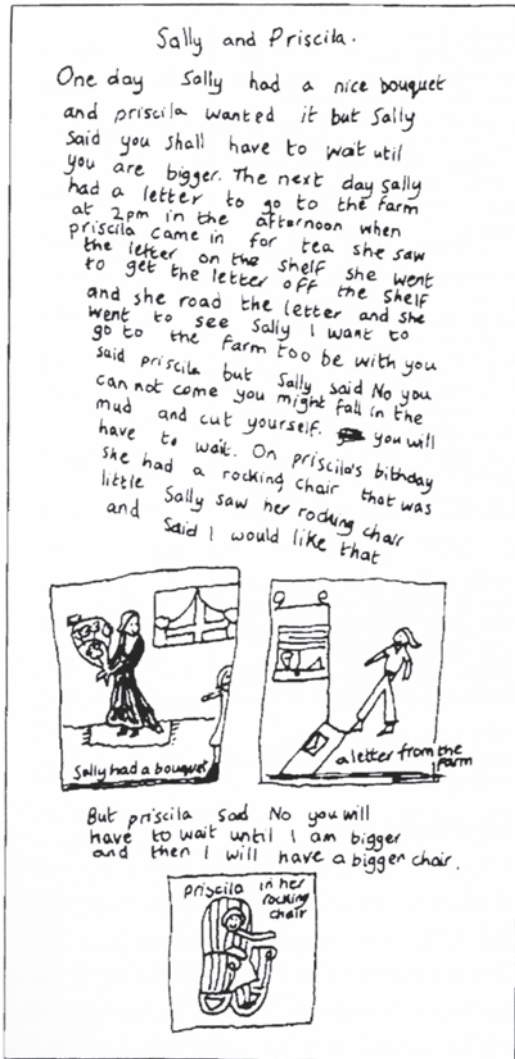 Sally and Priscila.
One day Sally had a nice bouquet
and priscila wanted it but Sally
said you shall have to wait util
you are bigger. The next day Sally
had a letter to go to the farm
at 2pm in the afternoon when
priscila came in for tea she saw
the letter on the shelf she went
to get the letter off the shelf
and she road the letter and she
went to see Sally I want to
go to the farm too be with you
said priscila but Sally said No you
can not come you might fall in the
mud and cut yourself. you will
have to wait. On priscila's bithday
she had a rocking chair that was
little Sally saw her rocking chair
and said I would like that
Sally had a bouquet
a letter from the
farm
But priscila said No you will
have to wait until I am bigger
and then I will have a bigger chair.
priscila in her
rocking
chair